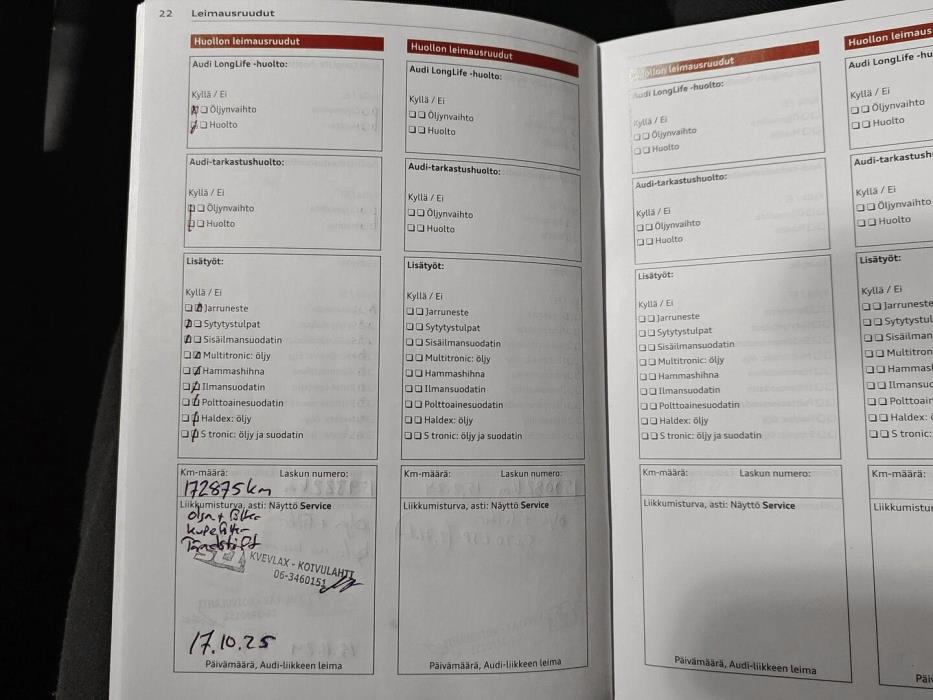 22 Leimausruudut
Huollon leimausruudut
Audi LongLife -huolto:
Kyllä / Ei
Öljynvaihto
Huolto
Audi-tarkastushuolto:
Kyllä / Ei
Öljynvaihto
Huolto
Lisätyöt:
Kyllä / Ei
Jarruneste
Sytytystulpat
Sisäilmansuodatin
Multitronic: öljy
Hammashihna
Ilmansuodatin
Polttoainesuodatin
Haldex: öljy
S tronic: öljy ja suodatin
Km-määrä: Laskun numero:
172875 km
Liikkumisturva, asti: Näyttö Service
Tändstift
KVEVLAX - KOIVULAHTI
06-3460151
17.10.25
Päivämäärä, Audi-liikkeen leima
Huollon leimausruudut
Audi LongLife -huolto:
Kyllä / Ei
Öljynvaihto
Huolto
Audi-tarkastushuolto:
Kyllä / Ei
Öljynvaihto
Huolto
Lisätyöt:
Kyllä / Ei
Jarruneste
Sytytystulpat
Sisäilmansuodatin
Multitronic: öljy
Hammashihna
Ilmansuodatin
Polttoainesuodatin
Haldex: öljy
S tronic: öljy ja suodatin
Km-määrä: Laskun numero:
Liikkumisturva, asti: Näyttö Service
Päivämäärä, Audi-liikkeen leima
Huollon leimausruudut
Audi LongLife -huolto:
Kyllä / Ei
Öljynvaihto
Huolto
Audi-tarkastushuolto:
Kyllä / Ei
Öljynvaihto
Huolto
Lisätyöt:
Kyllä / Ei
Jarruneste
Sytytystulpat
Sisäilmansuodatin
Multitronic: öljy
Hammashihna
Ilmansuodatin
Polttoainesuodatin
Haldex: öljy
S tronic: öljy ja suodatin
Km-määrä: Laskun numero:
Liikkumisturva, asti: Näyttö Service
Päivämäärä, Audi-liikkeen leima
Huollon leimaus
Audi LongLife -hu
Kyllä / Ei
Öljynvaihto
Huolto
Audi-tarkastush
Kyllä / Ei
Öljynvaihto
Huolto
Lisätyöt:
Kyllä / Ei
Jarruneste
Sytytystul
Sisäilman
Multitron
Hammas
Ilmansuo
Polttoain
Haldex:
S tronic:
Km-määrä:
Liikkumistur
Päi